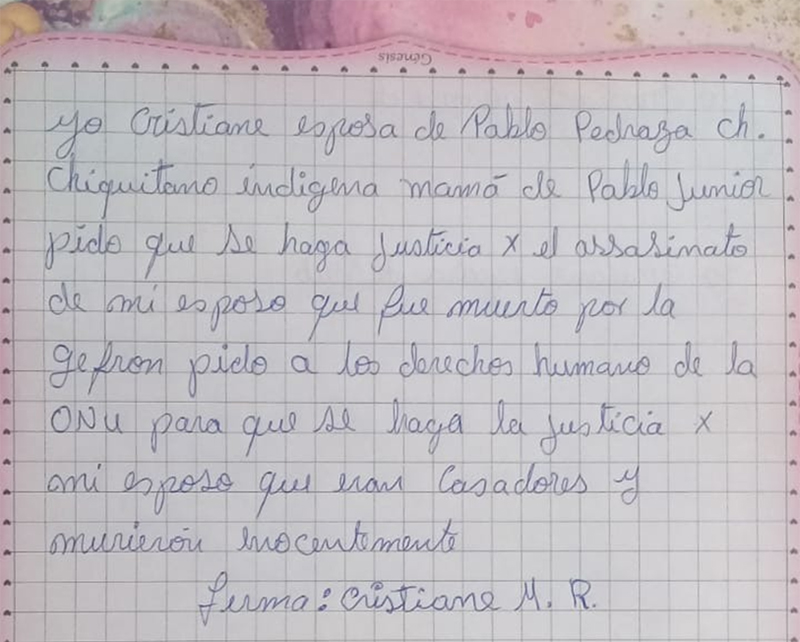 Génesis
yo Cristiane esposa de Pablo Pedraza ch.
Chiquitano indigena mamá de Pablo Junior
pido que se haga justicia x el assasinato
de mi esposo que fue muerto por la
gefron pido a los derechos humano de la
ONU para que se haga la justicia x
mi esposo que eran Casadores y
murierón inocentemente
firma: Cristiane M. R.